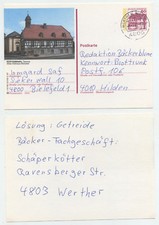 Postkarte
Irmgard Graf
4800 Bielefeld 1
Redaktion Bäckerblume
Kennwort: Brottrunk
Postf. 106
4010 Hilden
Lösung: Getreide
Bäcker-Fachgeschäft
Schäperkötter
Ravensberger Str.
4803 Werther